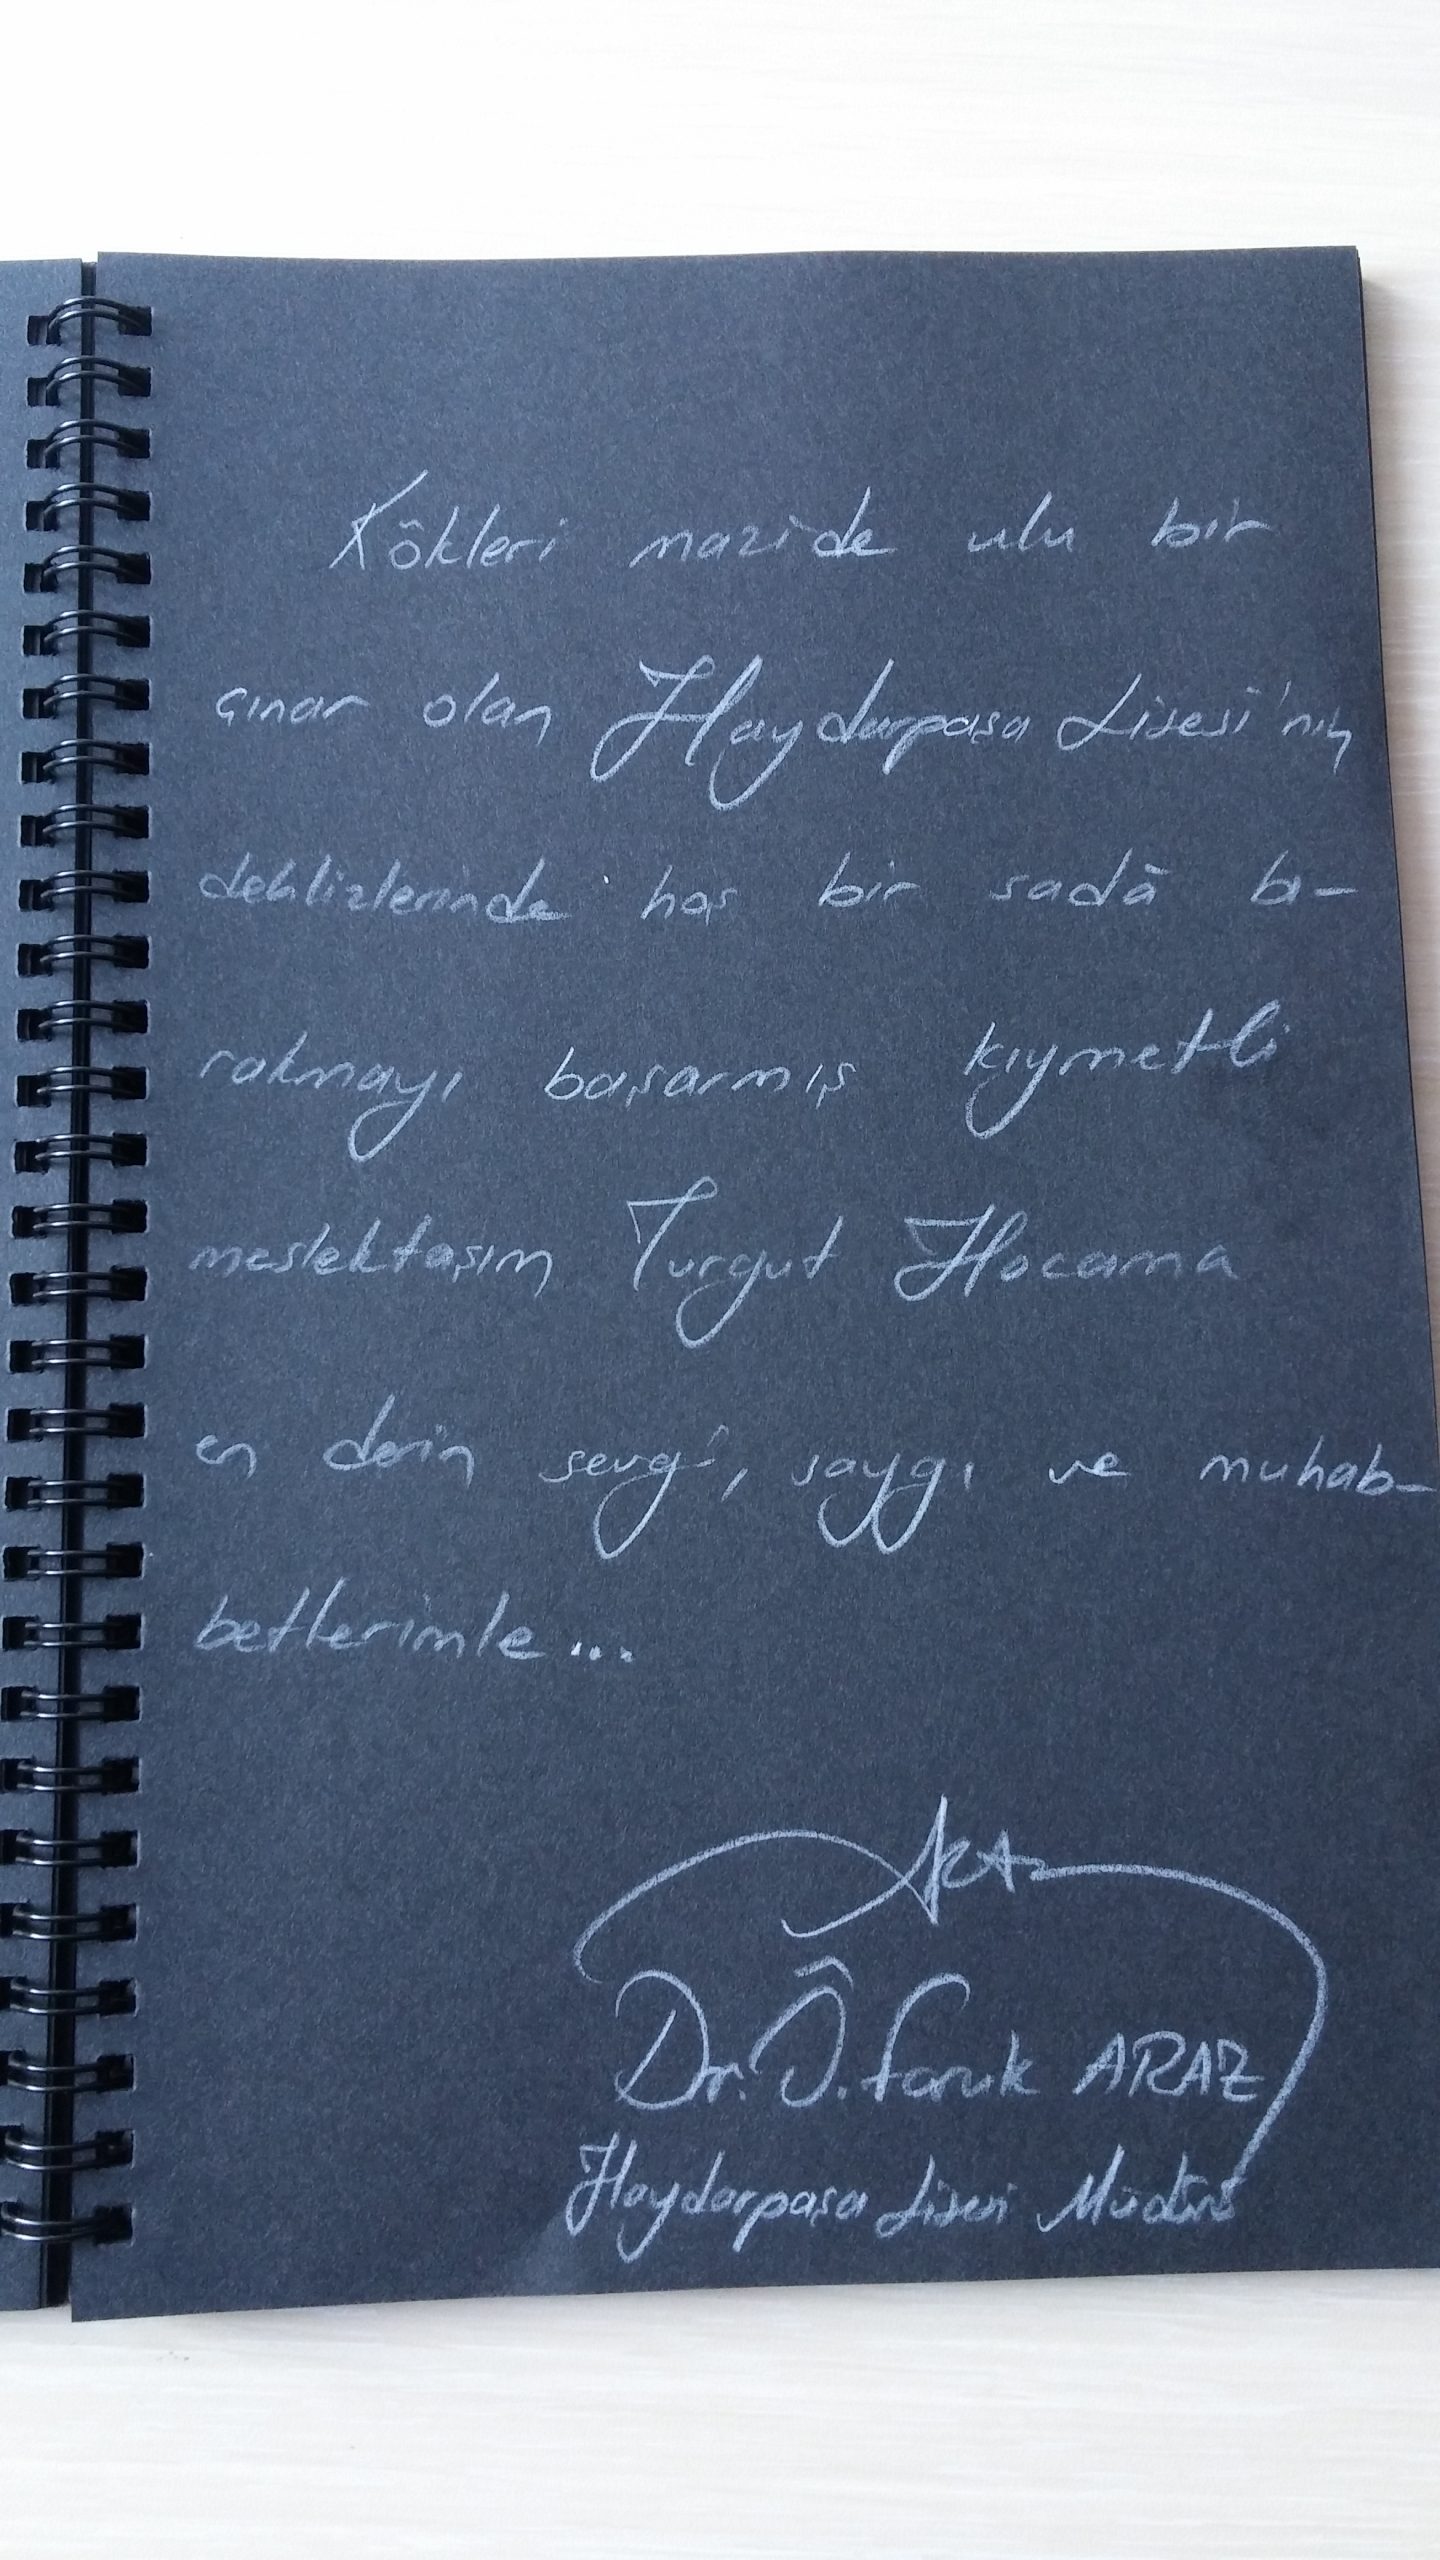 Kökleri mazide ulu bir
çınar olan Haydarpaşa Lisesi'nin
dehlizlerinde hoş bir sadâ bı-
rakmayı başarmış kıymetli
meslektaşım Turgut Hocama
en derin sevgi, saygı ve muhab-
betlerimle...
ARAz
Dr. Ö. Faruk ARAZ
Haydarpaşa Lisesi Müdürü